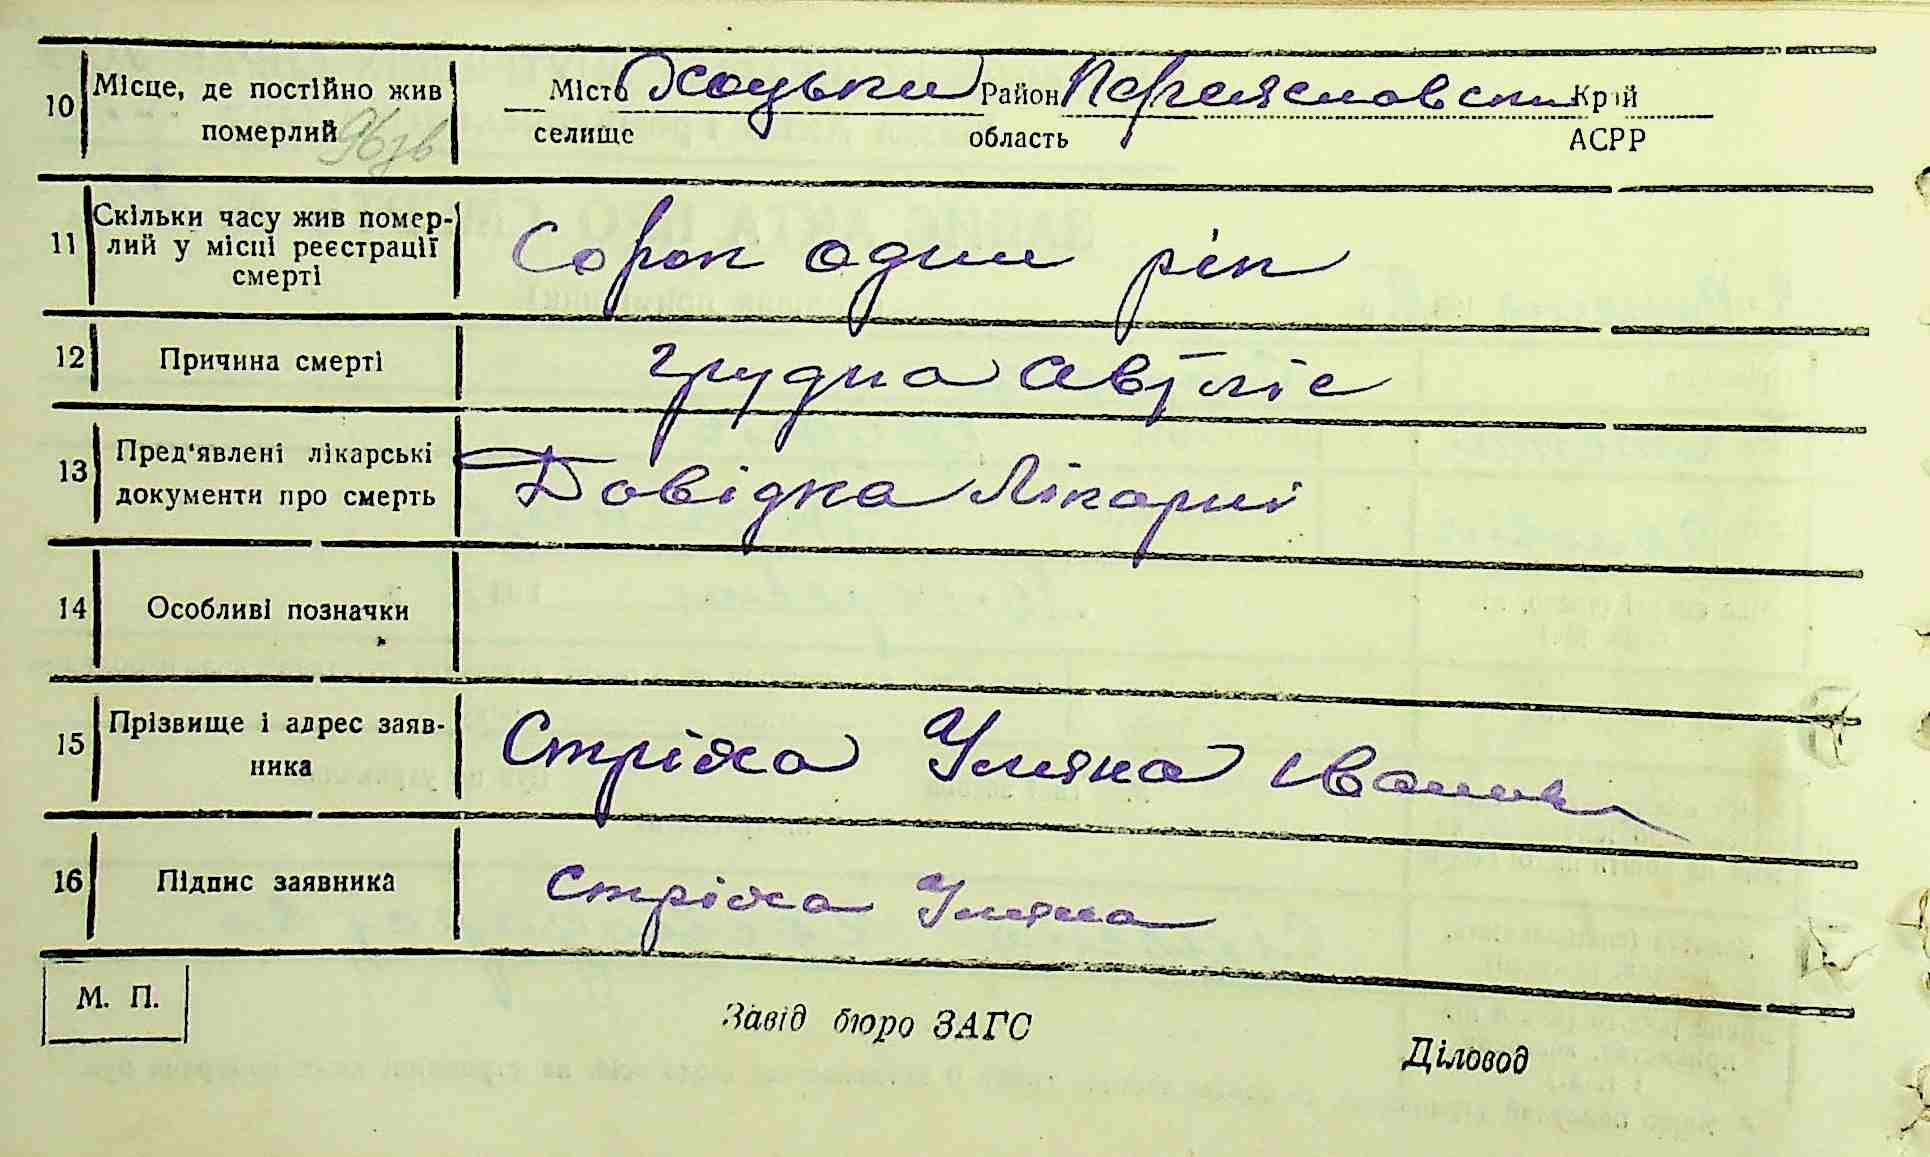 10 Місце, де постійно жив Місто Хоцьки Район Переяславськи Край
померлий селище область АСРР
11 Скільки часу жив помер-
лий у місці реєстрації
смерті Сорок один рік
12 Причина смерті грудна
13 Пред'явлені лікарські
документи про смерть Довідка Лікарні
14 Особливі позначки
15 Прізвище і адрес заяв-
ника Стріха Уляна Іванов
16 Підпис заявника Стріха Уляна
М. П.
Завід бюро ЗАГС
Діловод